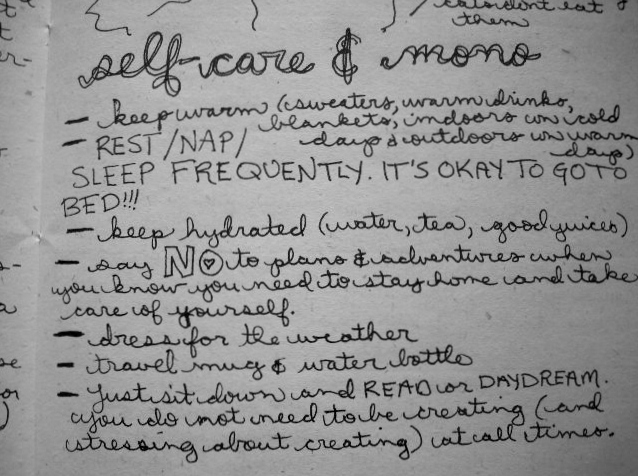 eat &
them
self-care & mono
- keep warm (sweaters, warm drinks,
blankets, indoors on cold
days & outdoors on warm
days)
- REST/NAP/
SLEEP FREQUENTLY. IT'S OKAY TO GO TO
BED!!!
- keep hydrated (water, tea, good juices)
- say NO to plans & adventures when
you know you need to stay home and take
care of yourself.
- dress for the weather
- travel mug & water bottle
- Just sit down and READ or DAYDREAM.
you do not need to be creating (and
stressing about creating) at all times.